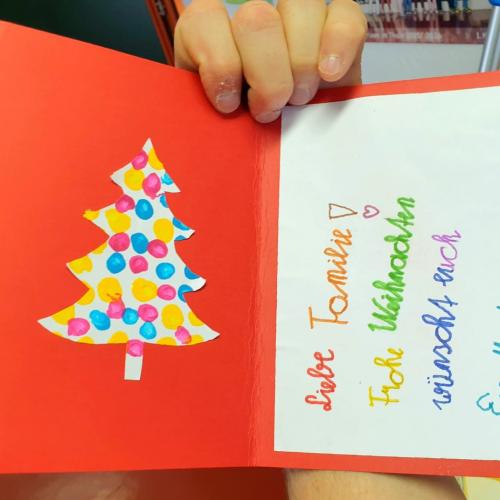 Liebe Familie!
Frohe Weihnachten
wünscht euch